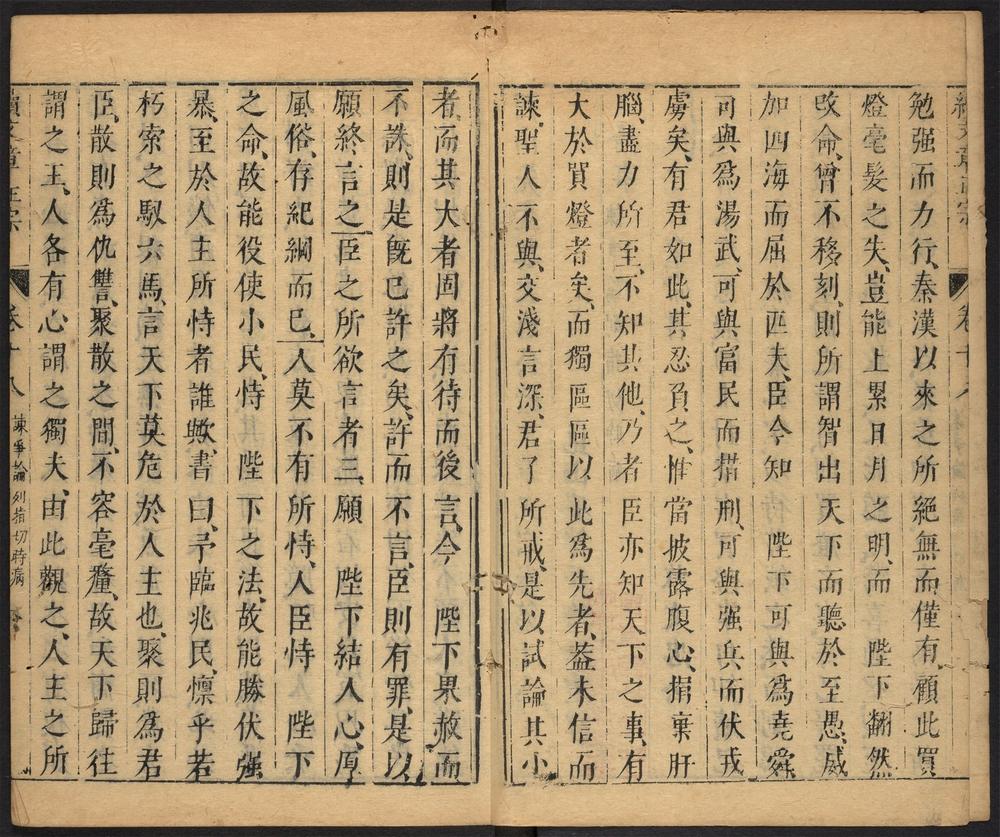 續文章正宗 卷十八
勉强而力行、秦漢以來之所絕無而僅有、顧此買
燈毫髮之失、豈能上累日月之明、而 陛下翻然
改命、曾不移刻、則所謂智出天下而聽於至愚、威
加四海而屈於匹夫、臣今知 陛下可與爲堯舜
可與爲湯武、可與富民而措刑、可與强兵而伏戎
虜矣、有君如此、其忍負之、惟當披露腹心、捐棄肝
腦、盡力所至、不知其他、乃者臣亦知天下之事、有
大於買燈者矣、而獨區區以此爲先者、葢未信而
諫、聖人不與、交淺言深、君子所戒、是以試論其小
者、而其大者固將有待而後言、今 陛下果赦而
不誅、則是旣已許之矣、許而不言、臣則有罪、是以
願終言之、臣之所欲言者三、願 陛下結人心、厚
風俗、存紀綱而已、人莫不有所恃、人臣恃 陛下
之命、故能役使小民、恃 陛下之法、故能勝伏强
暴、至於人主所恃者誰歟、書曰、予臨兆民、懍乎若
朽索之馭六馬、言天下莫危於人主也、聚則爲君
臣、散則爲仇讐、聚散之間、不容毫釐、故天下歸往
謂之王、人各有心謂之獨夫、由此觀之、人主之所
續文章正宗 卷十八 諫爭論列指切時病